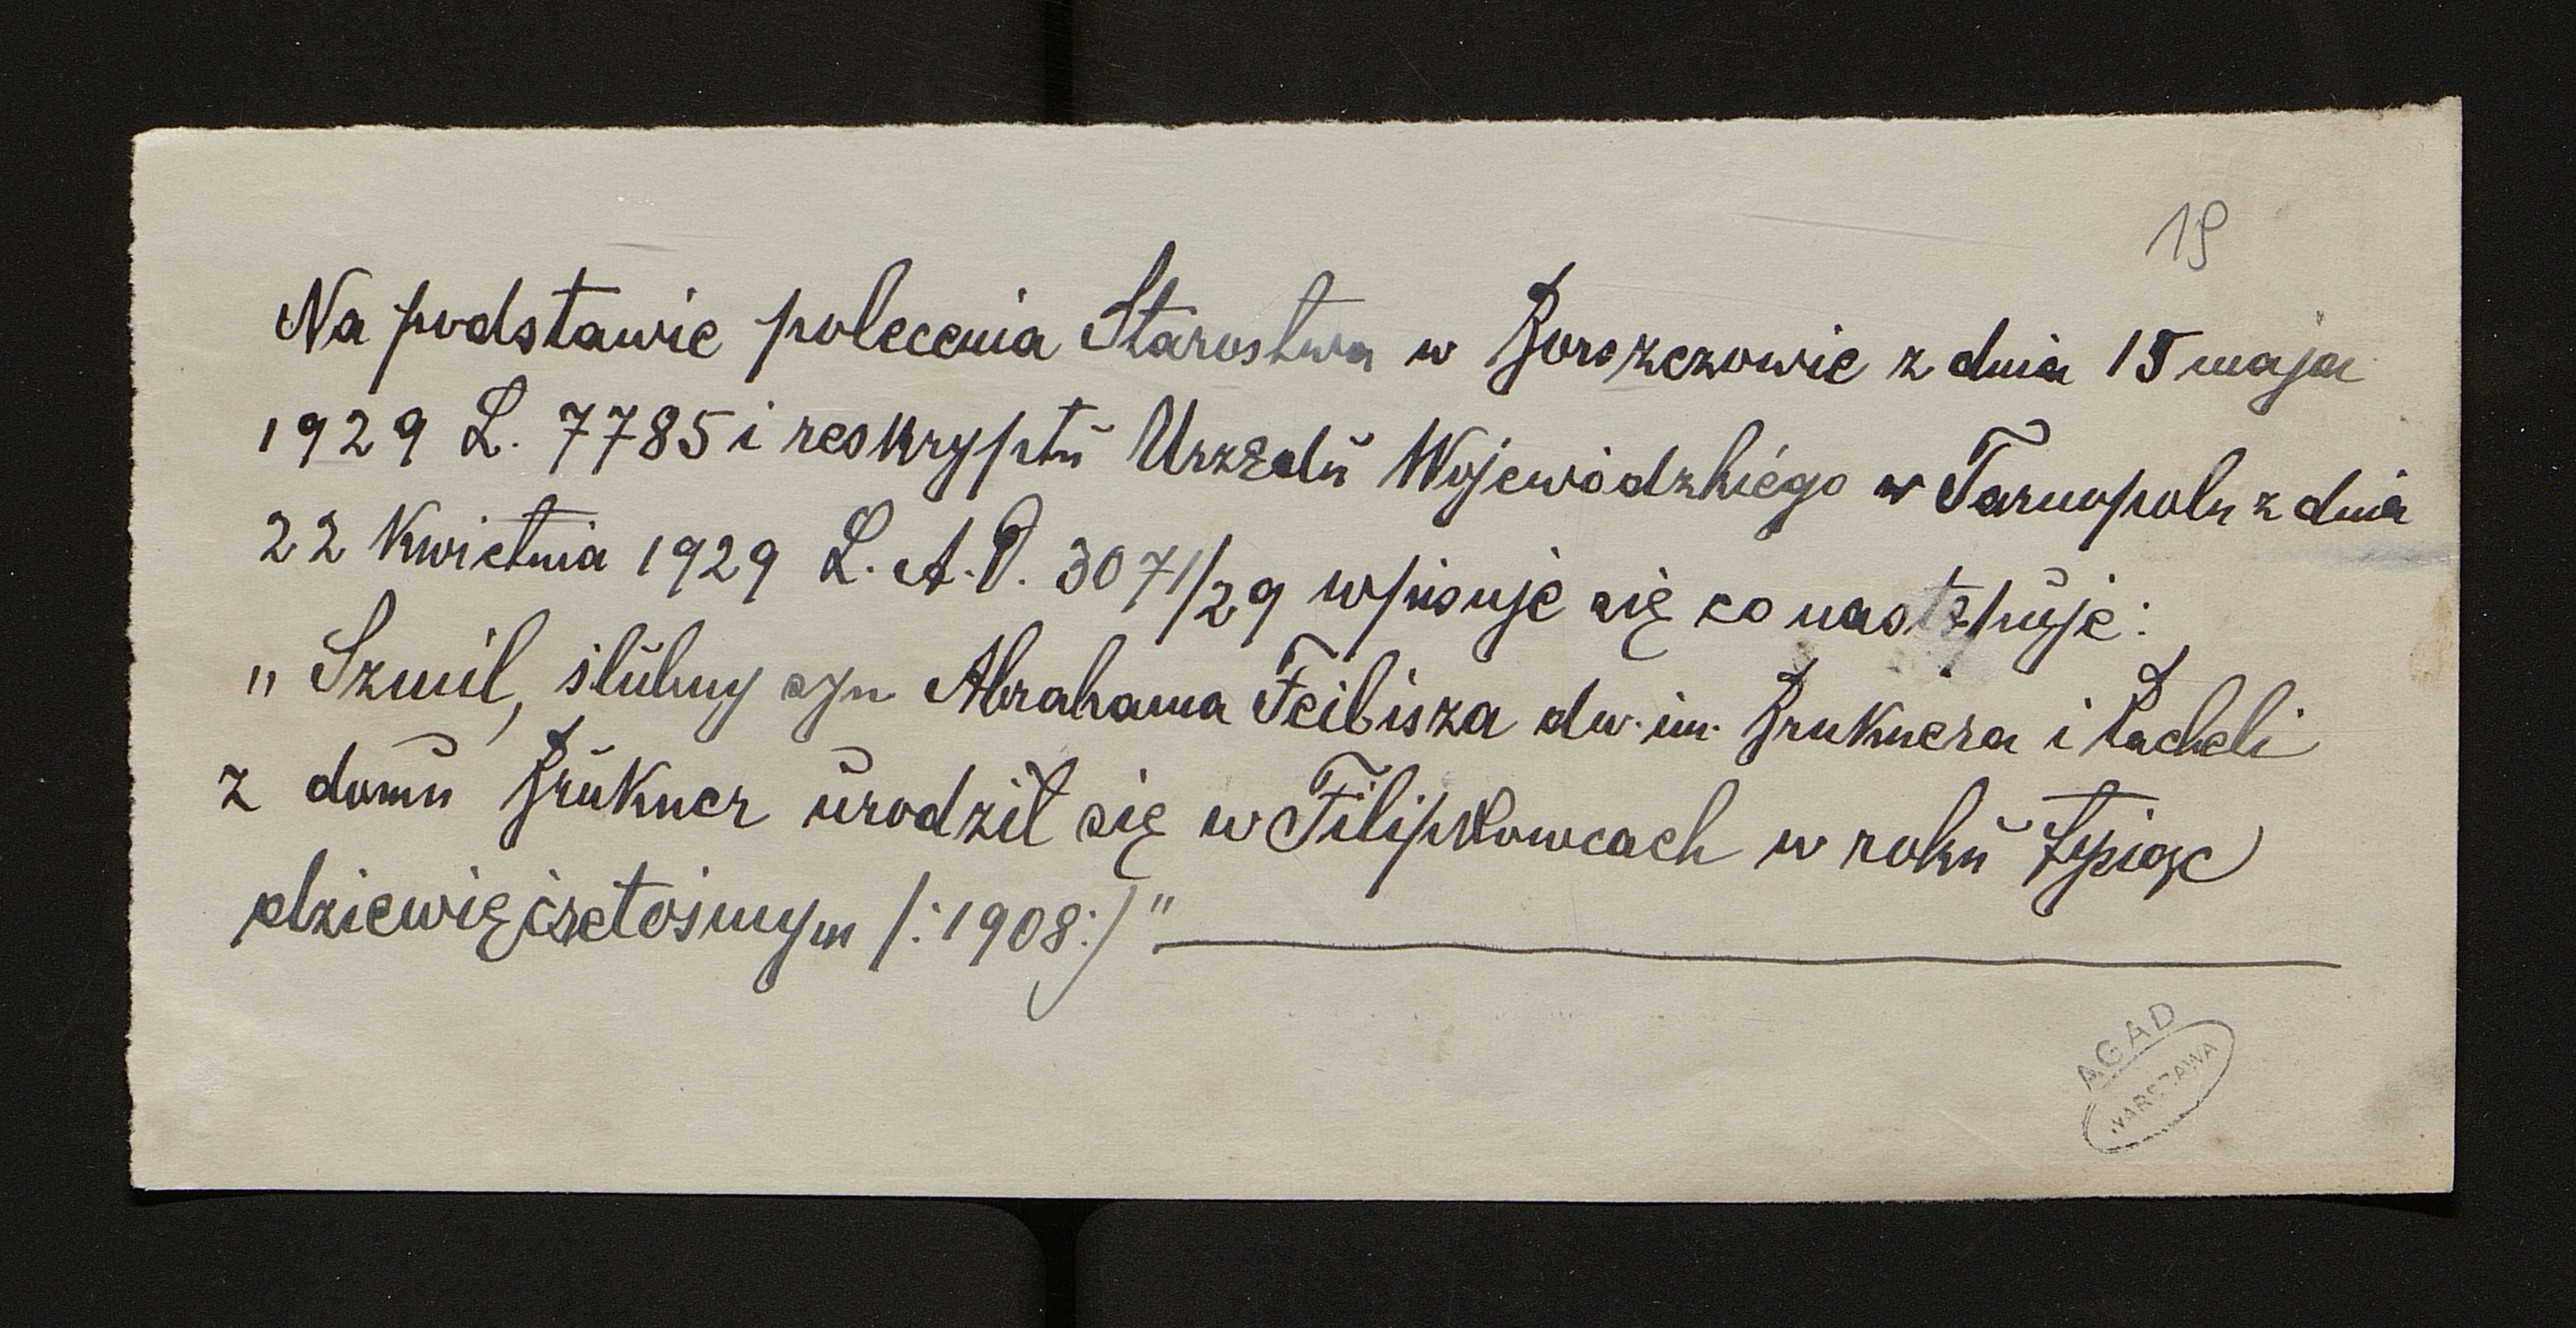 19
Na podstawie polecenia Starostwa w Borszczowie z dnia 15 maja
1929 L. 7785 i reskryptu Urzędu Wojewódzkiego w Tarnopolu z dnia
22 kwietnia 1929 L. A.D. 3071/29 wpisuje się co następuje:
"Szmil, ślubny syn Abrahama Feibisza dw. im. Bruknera i Racheli
z domu Brukner urodził się w Filipkowcach w roku tysiąc
dziewięćsetośmym /:1908:/"
AGAD
WARSZAWA